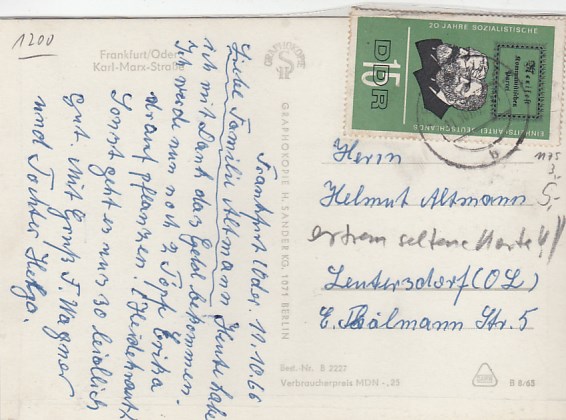 1200
Frankfurt/Oder
Karl-Marx-Straße
GRAPHOKOPIE
GRAPHOKOPIE H. SANDER KG, 1071 BERLIN
Frankfurt/Oder. 11.10.66
Liebe Familie Altmann! Heute habe
ich mit Dank das Geld bekommen.
Ich werde nun noch 2 Töpfe Erika
drauf pflanzen! (Heidekraut)
Sonst geht es mir so leidlich
Gut. Mit Gruß F. Wagner
und Tochter Helga.
20 JAHRE SOZIALISTISCHE
EINHEITSPARTEI DEUTSCHLANDS
DDR
15
Manifest
Kommunistischen
Partei
b
1175
3,-
5,-
Herrn
Helmut Altmann
extrem seltene Karte!!
Leutersdorf (OL)
E. Thälmann Str. 5
Best.-Nr. B 2227
Verbraucherpreis MDN -,25
B 8/63